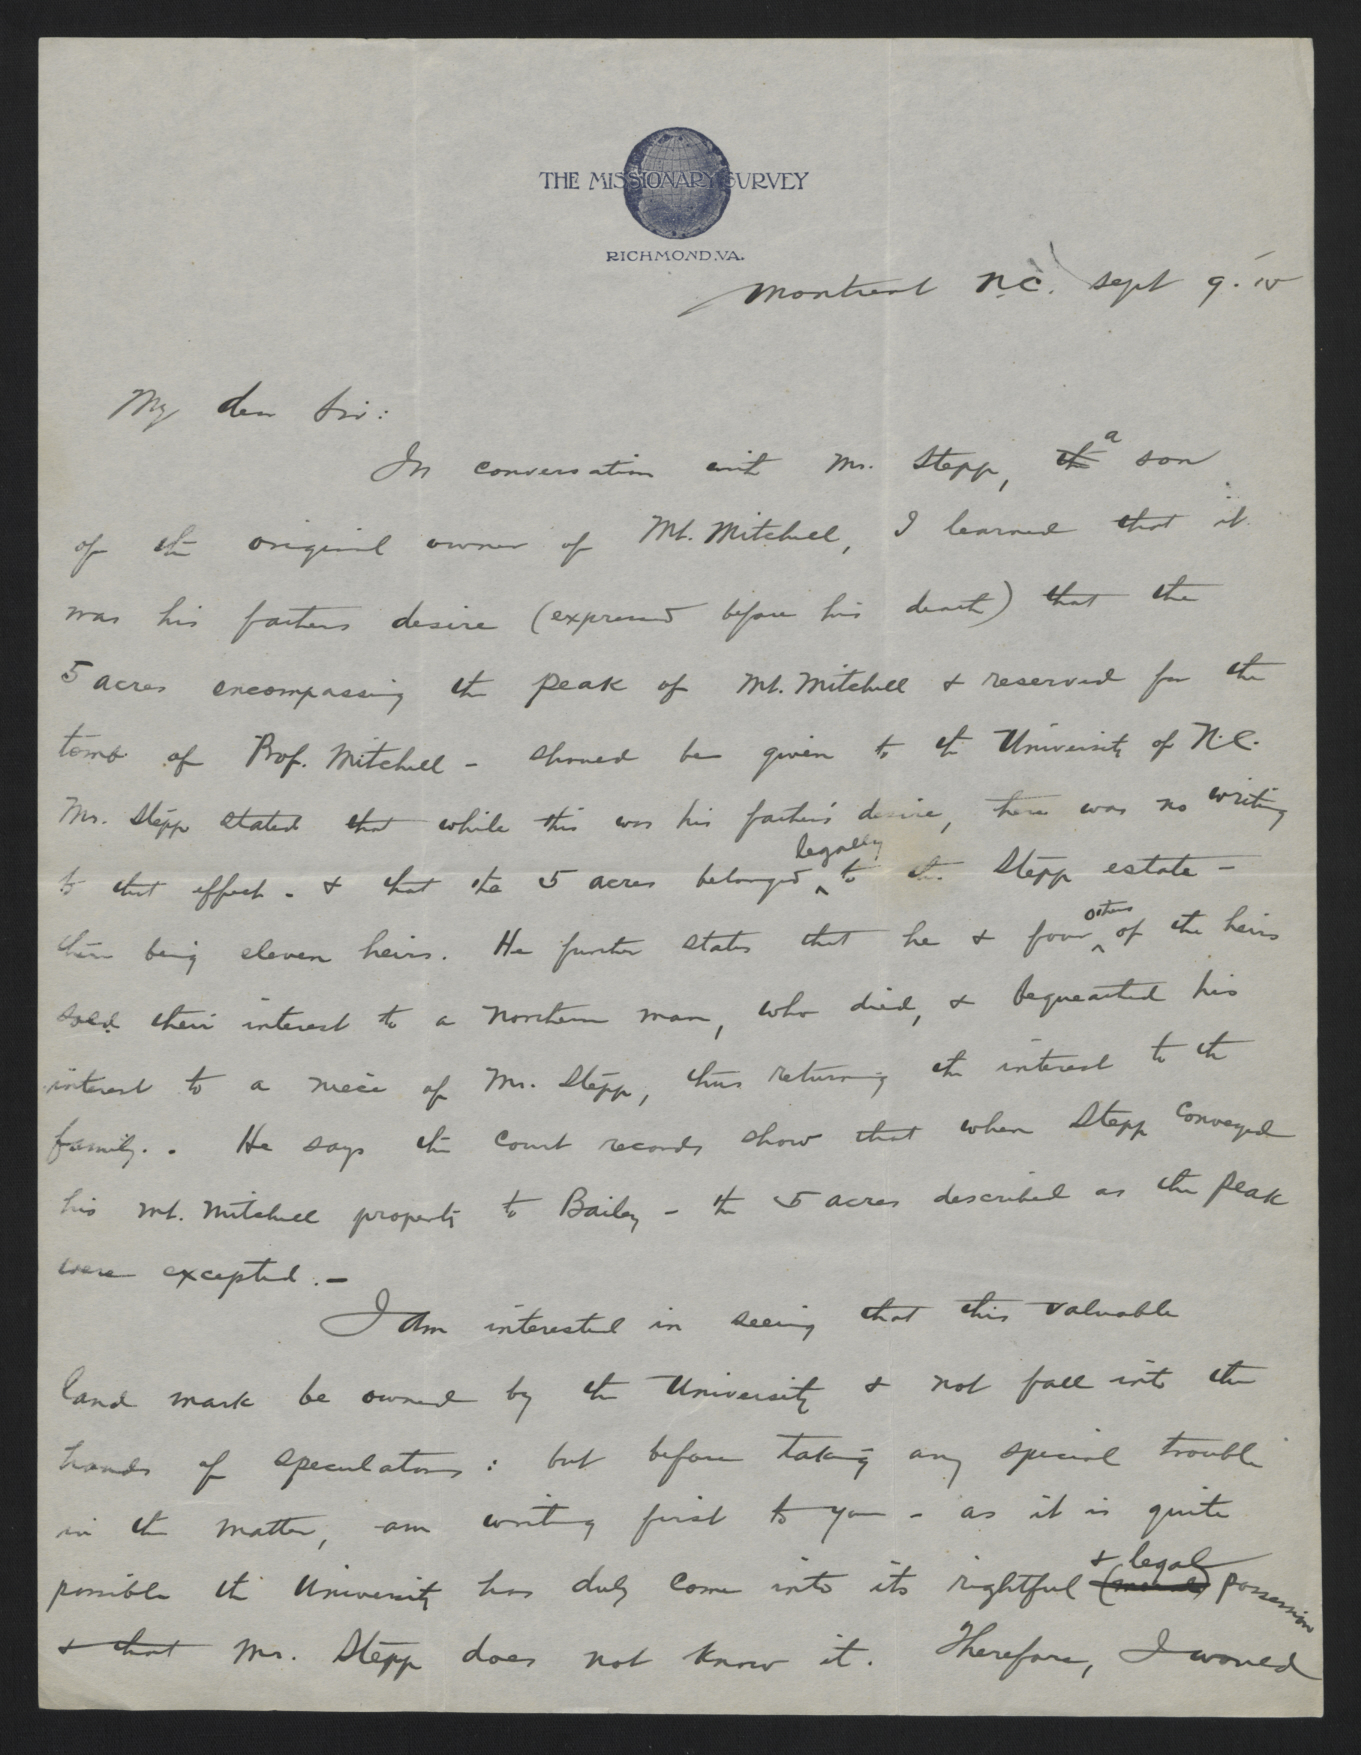 THE MISSIONARY SURVEY
RICHMOND, VA.
Montreat N.C. Sept 9. '15
My dear Sir:
In conversation with Mr. Stepp, the a son
of the original owner of Mt. Mitchell, I learned that it
was his fathers desire (expressed before his death) that the
5 acres encompassing the peak of Mt. Mitchell & reserved for the
tomb of Prof. Mitchell - should be given to the University of N.C.
Mr. Stepp stated that while this was his father's desire, there was no writing
to that effect - & that the 5 acres belonged legally to the Stepp estate -
there being eleven heirs. He further states that he & four others of the heirs
sold their interest to a Northern man, who died, & bequeathed his
interest to a niece of Mr. Stepp, thus returning the interest to the
family. . He says the court records show that when Stepp conveyed
his Mt. Mitchell property to Bailey - the 5 acres described as the peak
were excepted. -
I am interested in seeing that this valuable
land mark be owned by the University & not fall into the
hands of speculators : but before taking any special trouble
in the matter, am writing first to you - as it is quite
possible the University has duly come into its rightful & legal possession
& that Mr. Stepp does not know it. Therefore, I would